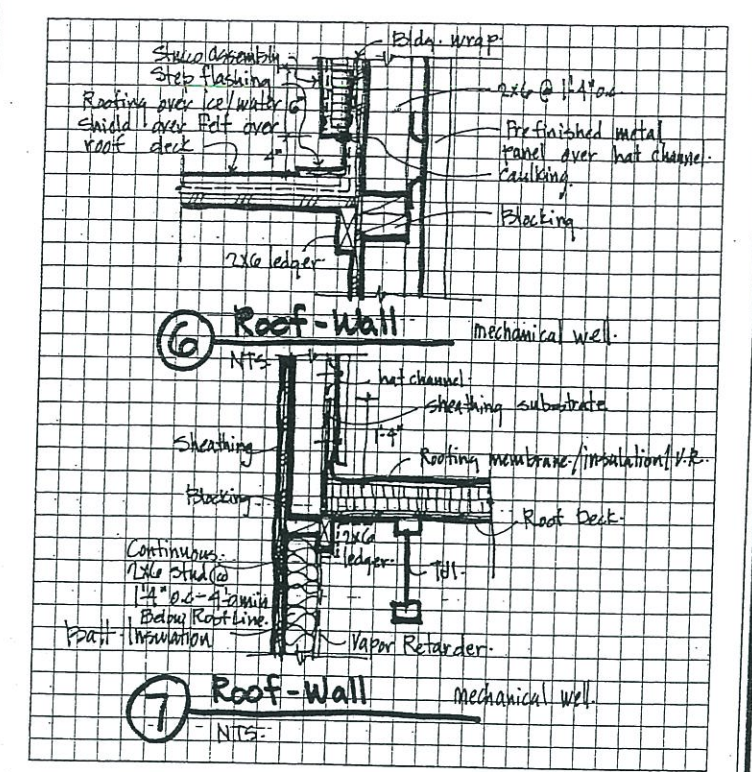 Bldg. wrap.
Stucco assembly
Step flashing
Roofing over Ice/water
shield over Felt over
roof deck
6"
4"
2x6 @ 1'-4" o.c.
Prefinished metal
panel over hat channel.
Caulking
Blocking
2x6 ledger
6 Roof-Wall mechanical well.
NTS.
hat channel
sheathing substrate
1'-4"
Sheathing
Roofing membrane/insulation/V.R.
Blocking
Roof Deck.
2x6
ledger.
TJI.
Continuous
2x6 stud @
1'-4" o.c - 4'-0 min
Below Roof Line.
Batt Insulation
Vapor Retarder.
7 Roof-Wall mechanical well.
NTS.